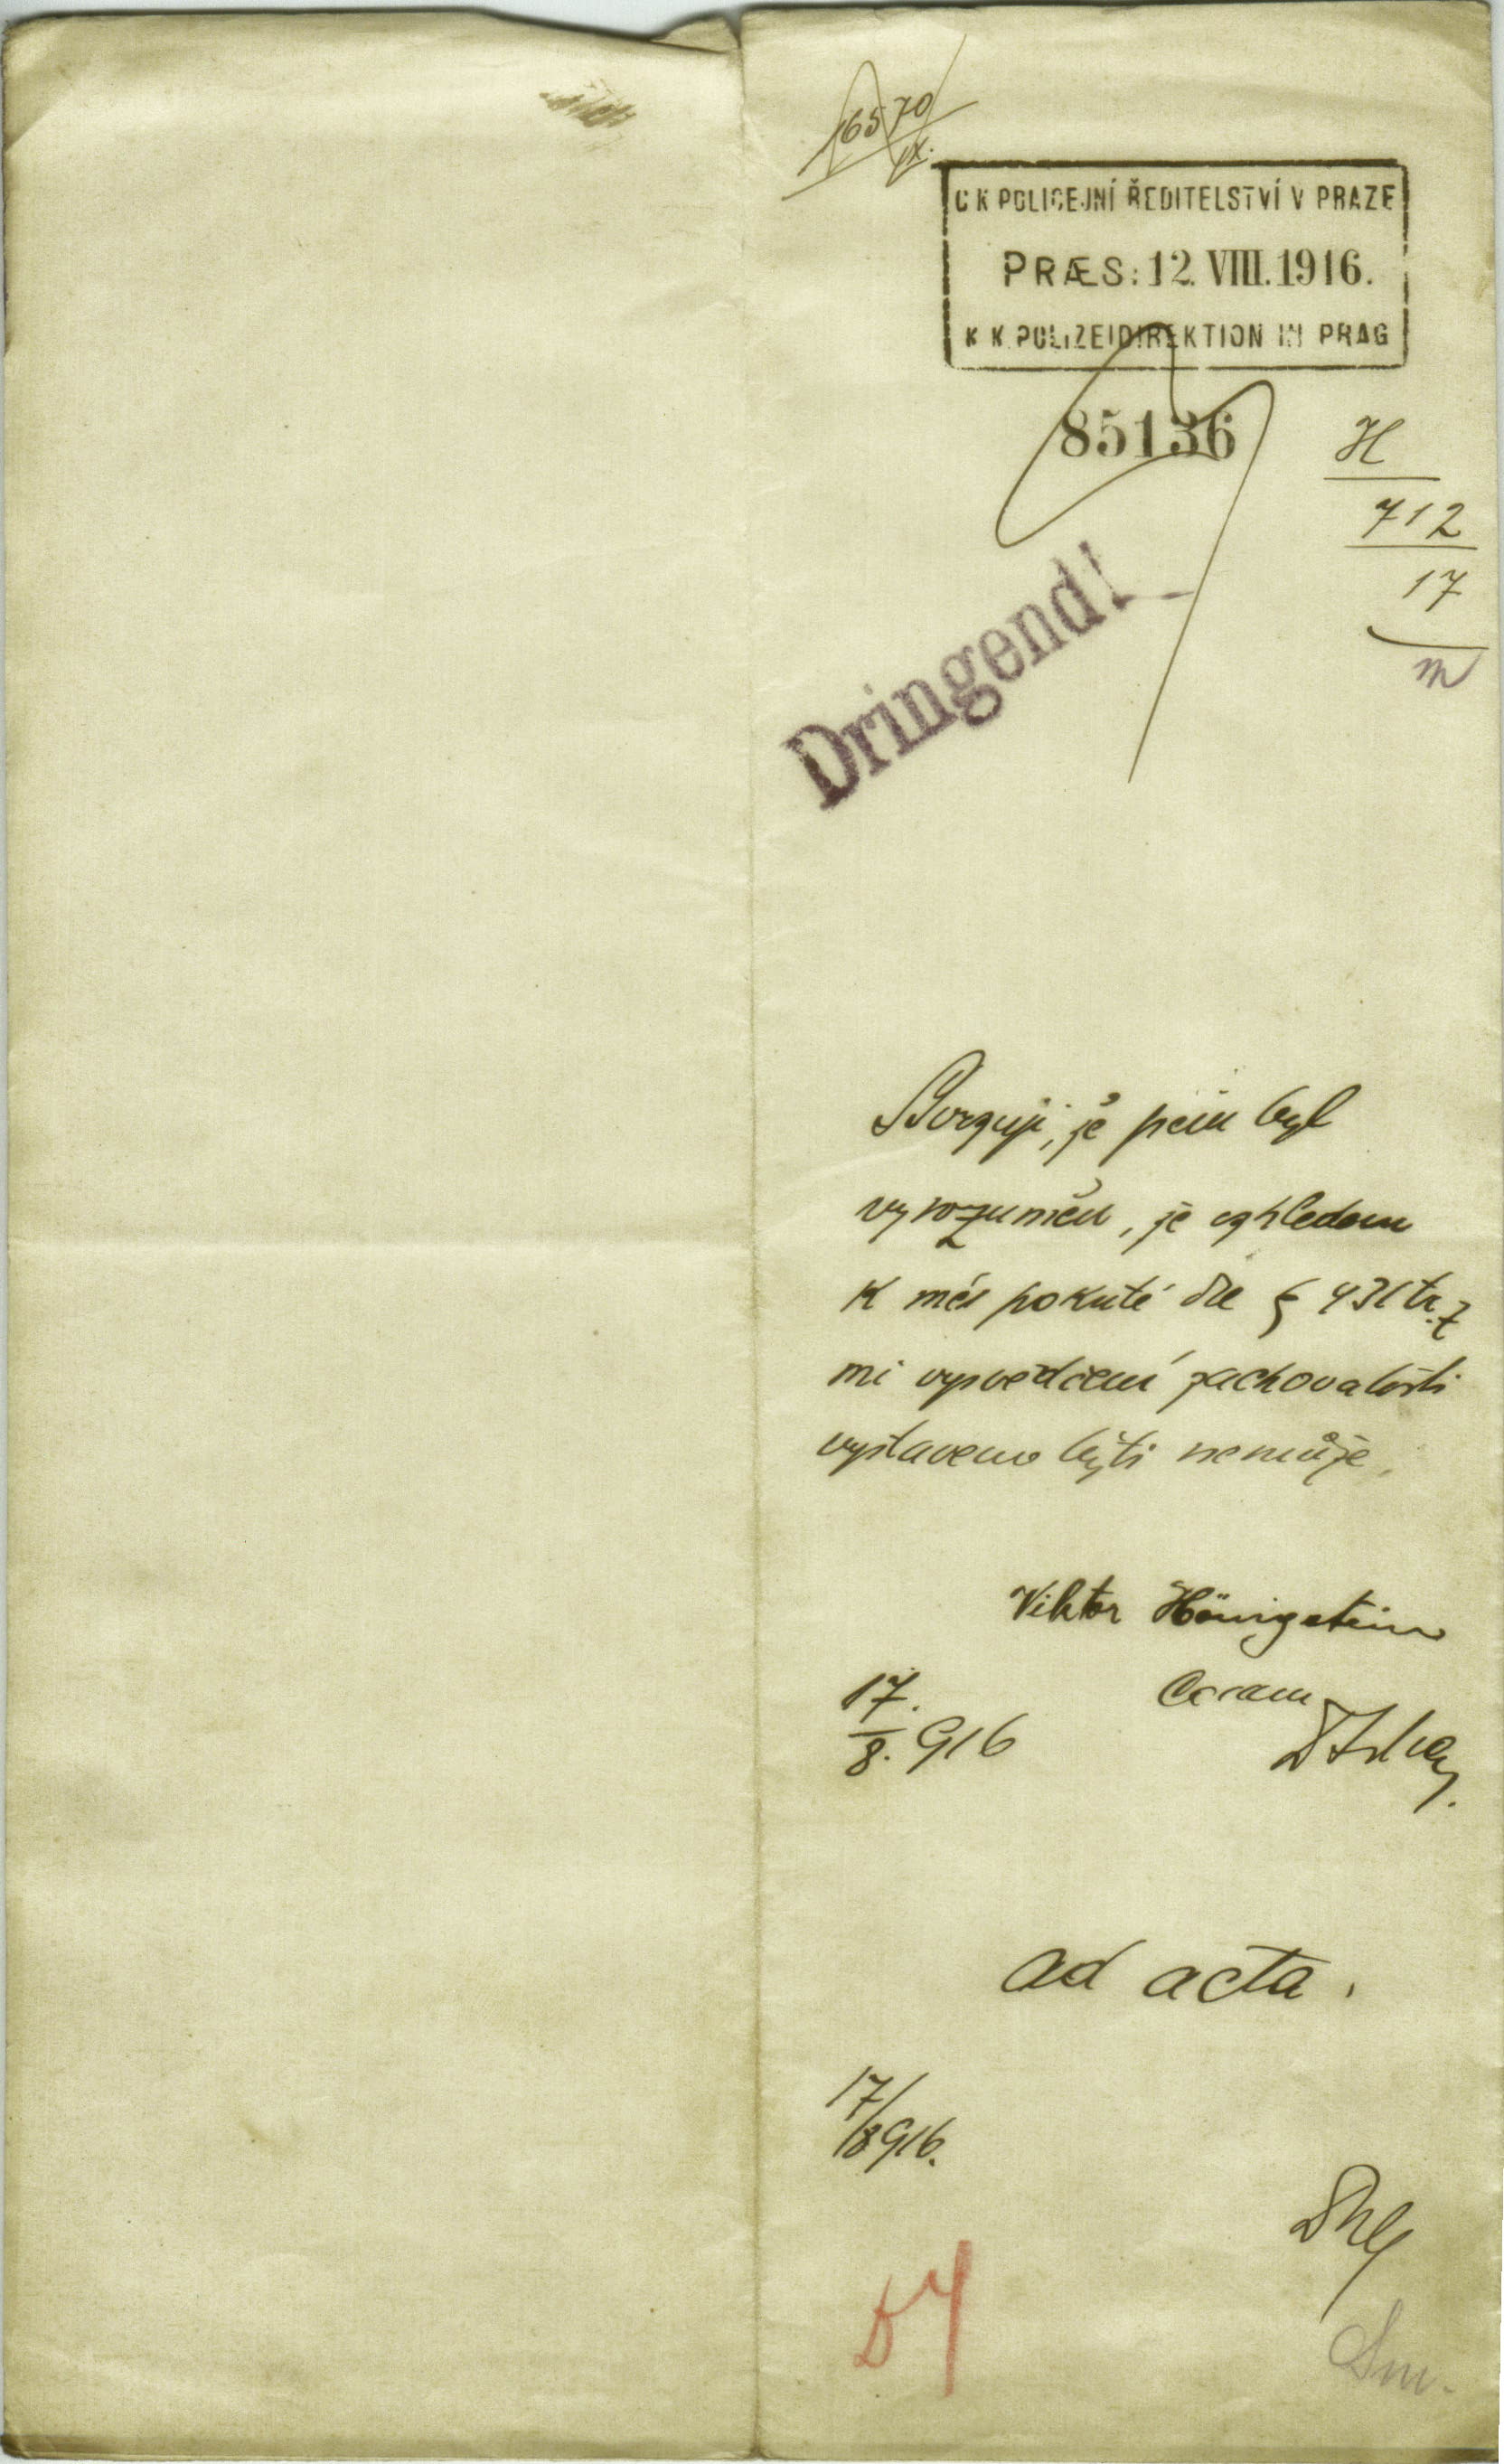 16570
IX.
C K POLICEJNÍ ŘEDITELSTVÍ V PRAZE
PRÆS: 12. VIII. 1916.
K K POLIZEIDIREKTION IN PRAG
85136
H
712
17
m
Dringend!
Stvrzuji, že jsem byl
vyrozuměn, že vzhledem
k mé pokutě dle § 431 tr. z
mi vysvědčení zachovalosti
vystaveno býti nemůže.
Viktor Hönigstein
Coram
17.
8. 916
ad acta.
17/8 916.